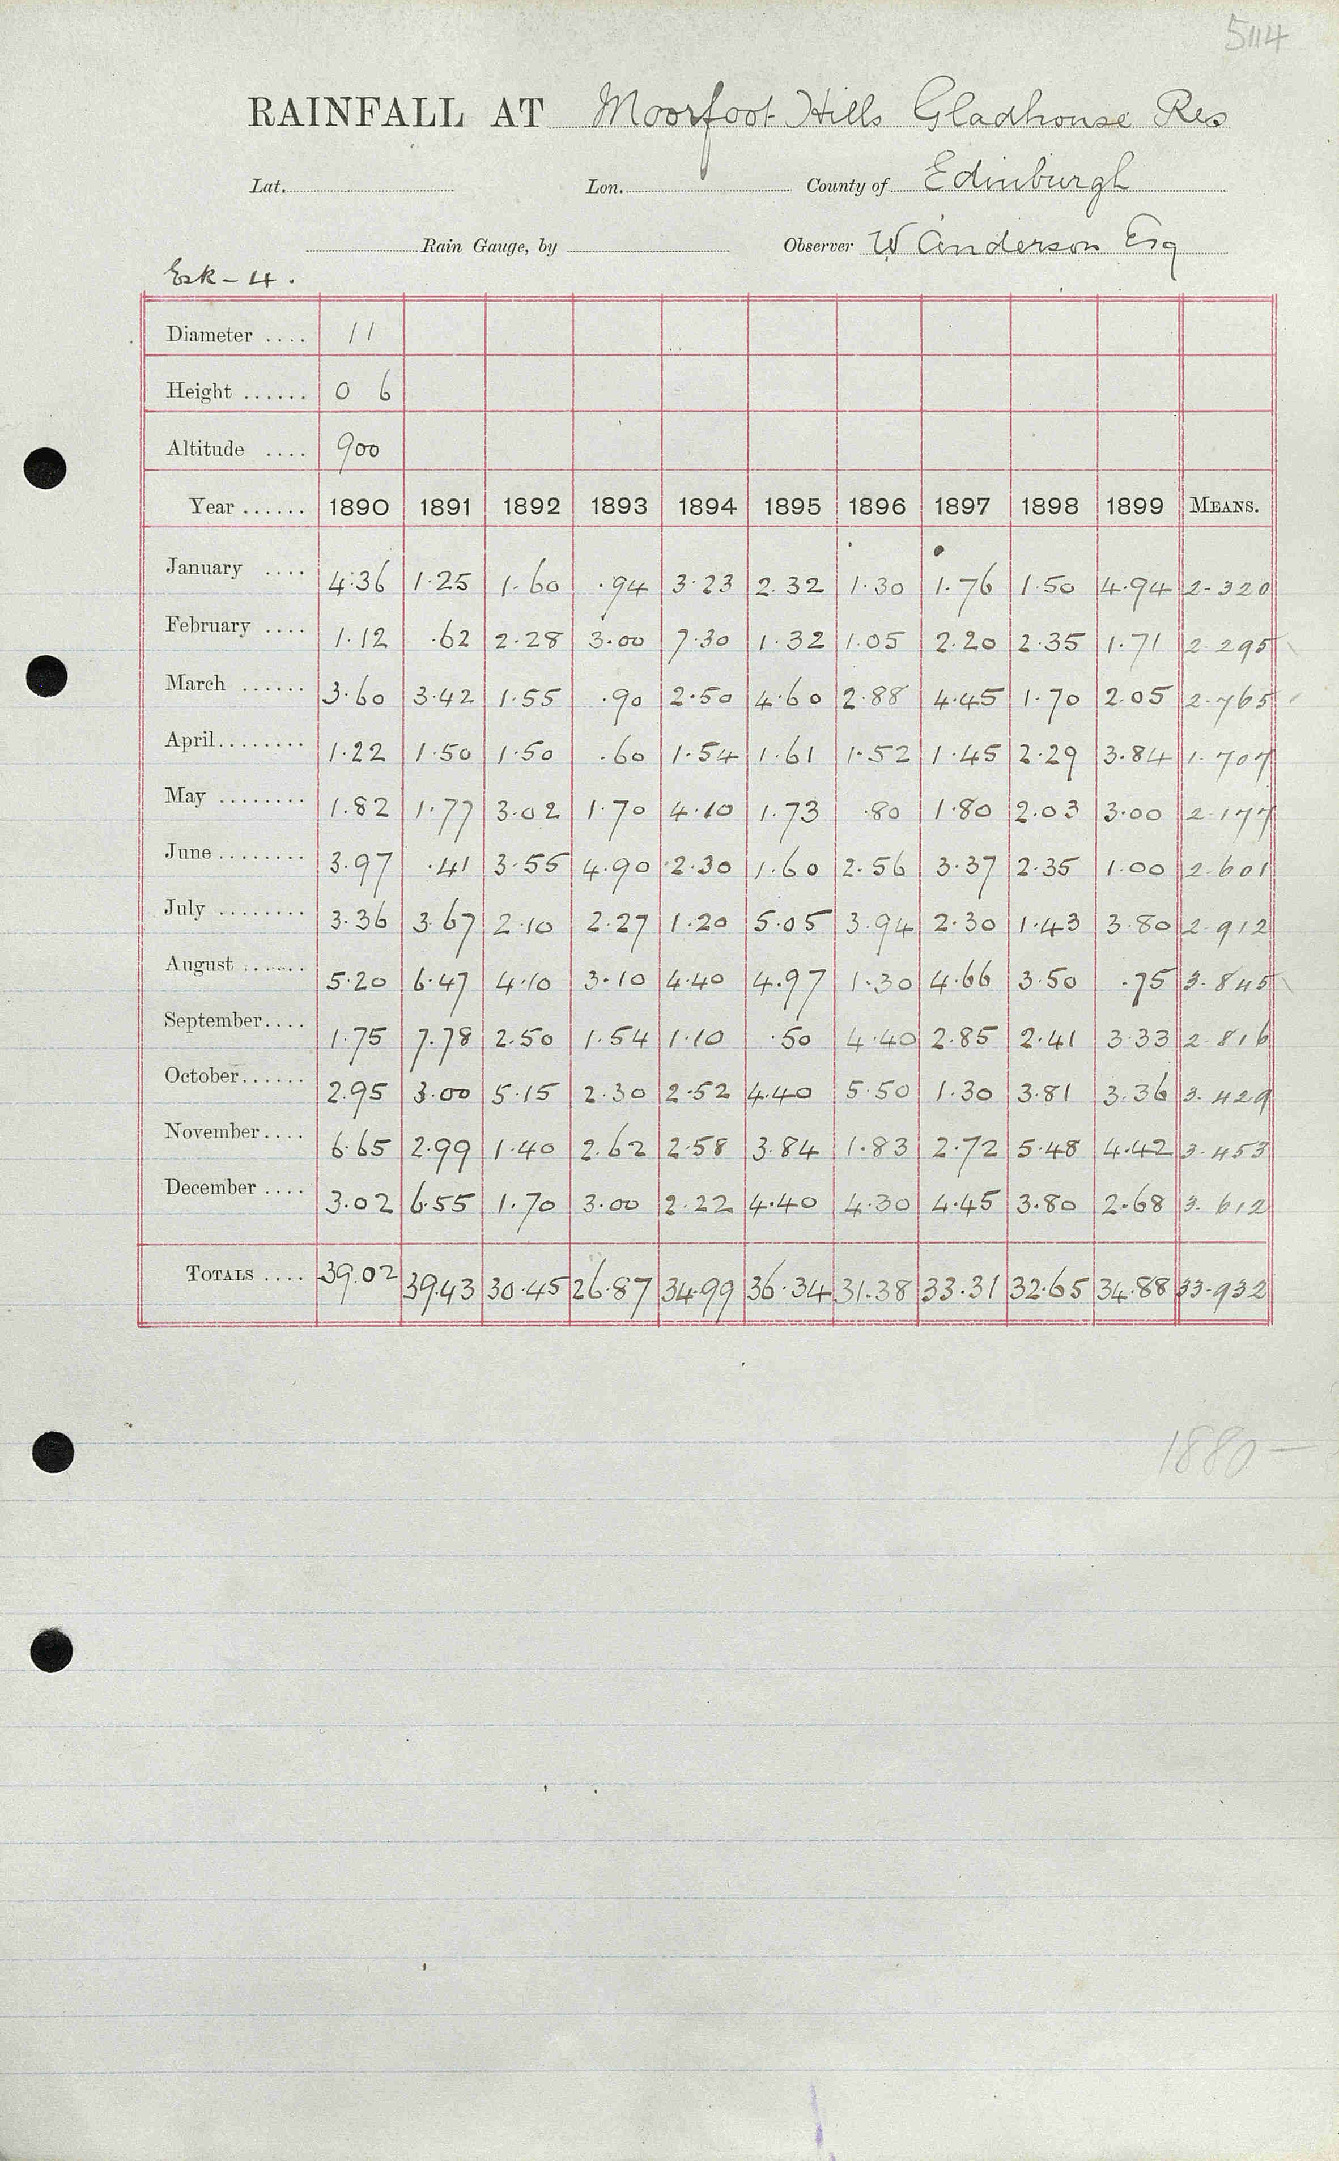 5114
RAINFALL AT Moorfoot Hills Gladhouse Res
Lat. Lon. County of Edinburgh
Rain Gauge, by Observer W Anderson Esq
Esk - 4.
Diameter .... 11
Height ...... 0 6
Altitude .... 900
Year ...... 1890 1891 1892 1893 1894 1895 1896 1897 1898 1899 MEANS.
January .... 4.36 1.25 1.60 .94 3.23 2.32 1.30 1.76 1.50 4.94 2.320
February .... 1.12 .62 2.28 3.00 7.30 1.32 1.05 2.20 2.35 1.71 2.295
March ...... 3.60 3.42 1.55 .90 2.50 4.60 2.88 4.45 1.70 2.05 2.765
April........ 1.22 1.50 1.50 .60 1.54 1.61 1.52 1.45 2.29 3.84 1.707
May ........ 1.82 1.77 3.02 1.70 4.10 1.73 .80 1.80 2.03 3.00 2.177
June ........ 3.97 .41 3.55 4.90 2.30 1.60 2.56 3.37 2.35 1.00 2.601
July ........ 3.36 3.67 2.10 2.27 1.20 5.05 3.94 2.30 1.43 3.80 2.912
August ...... 5.20 6.47 4.10 3.10 4.40 4.97 1.30 4.66 3.50 .75 3.845
September.... 1.75 7.78 2.50 1.54 1.10 .50 4.40 2.85 2.41 3.33 2.816
October...... 2.95 3.00 5.15 2.30 2.52 4.40 5.50 1.30 3.81 3.36 3.429
November.... 6.65 2.99 1.40 2.62 2.58 3.84 1.83 2.72 5.48 4.42 3.453
December .... 3.02 6.55 1.70 3.00 2.22 4.40 4.30 4.45 3.80 2.68 3.612
TOTALS .... 39.02 39.43 30.45 26.87 34.99 36.34 31.38 33.31 32.65 34.88 33.932
1880 —